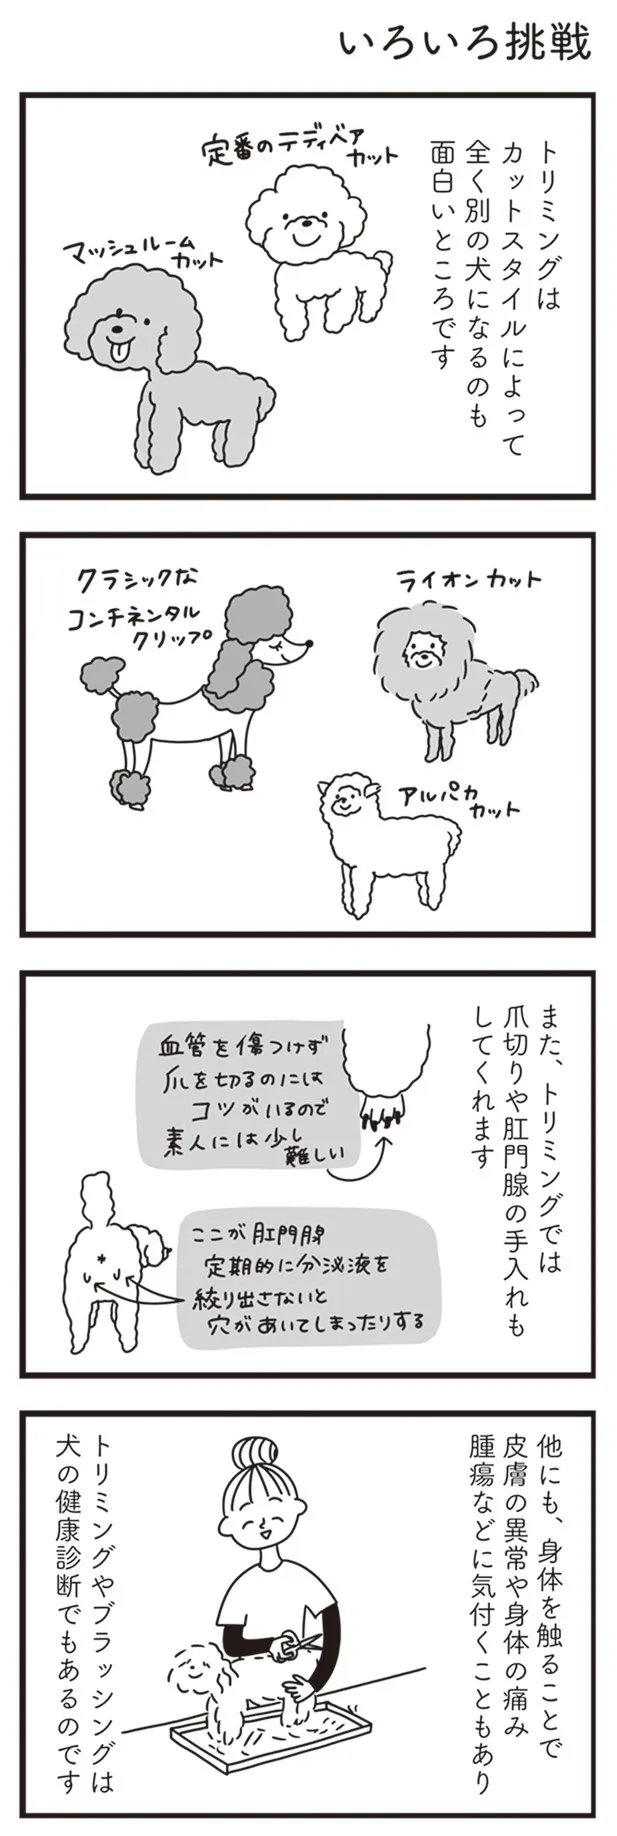 いろいろ挑戦
トリミングは
カットスタイルによって
全く別の犬になるのも
面白いところです
定番のテディベア
カット
マッシュルーム
カット
ライオンカット
クラシックな
コンチネンタル
クリップ
アルパカ
カット
また、トリミングでは
爪切りや肛門腺の手入れも
してくれます
血管を傷つけず
爪を切るのには
コツがいるので
素人には少し
難しい
ここが肛門腺
定期的に分泌液を
絞り出さないと
穴があいてしまったりする
他にも、身体を触ることで
皮膚の異常や身体の痛み
腫瘍などに気付くこともあり
トリミングやブラッシングは
犬の健康診断でもあるのです